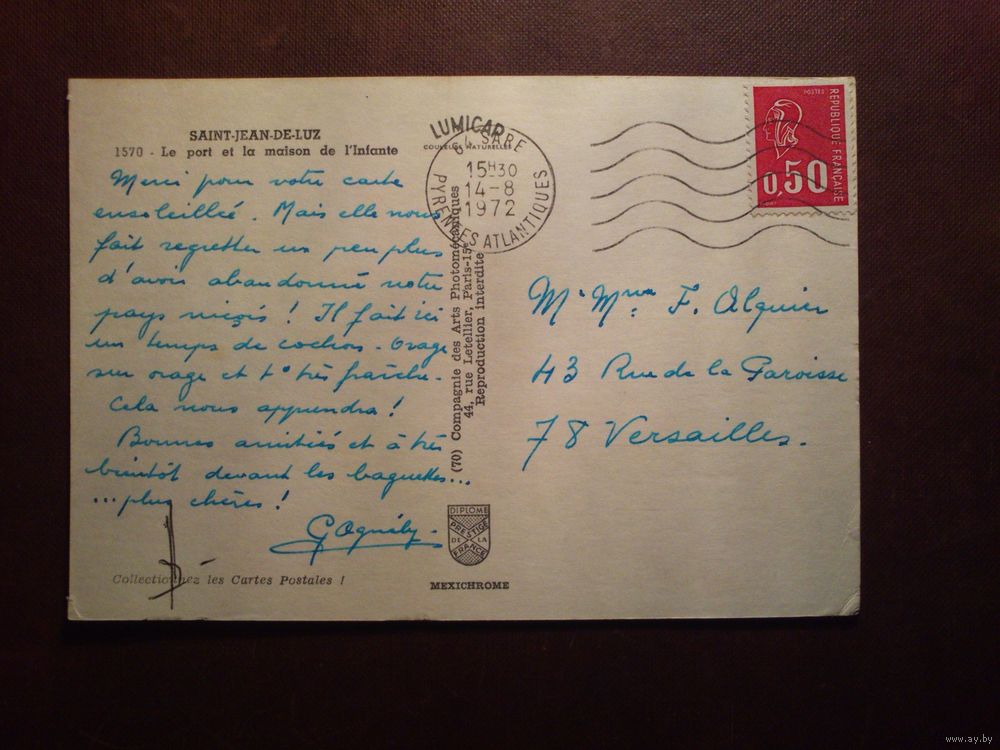 SAINT-JEAN-DE-LUZ
1570 - Le port et la maison de l'Infante
Merci pour votre carte
ensoleillée. Mais elle nous
fait regretter un peu plus
d'avoir abandonné notre
pays niçois ! Il fait ici
un temps de cochon - Orage
sur orage et t° très fraîche.
Cela nous apprendra !
Bonnes amitiés et à très
bientôt devant les baguettes...
... plus chères !
Collectionnez les Cartes Postales !
LUMICAP
COULEURS NATURELLES
64 SARE
15H30
14-8
1972
PYRENEES ATLANTIQUES
(70) Compagnie des Arts Photomécaniques
44, rue Letellier, Paris-15e
Reproduction interdite
DIPLOME
PRESTIGE
DE LA
FRANCE
MEXICHROME
POSTES
REPUBLIQUE FRANÇAISE
0,50
Mr Mme F. Alquier
43 Rue de la Paroisse
78 Versailles.
www.ay.by